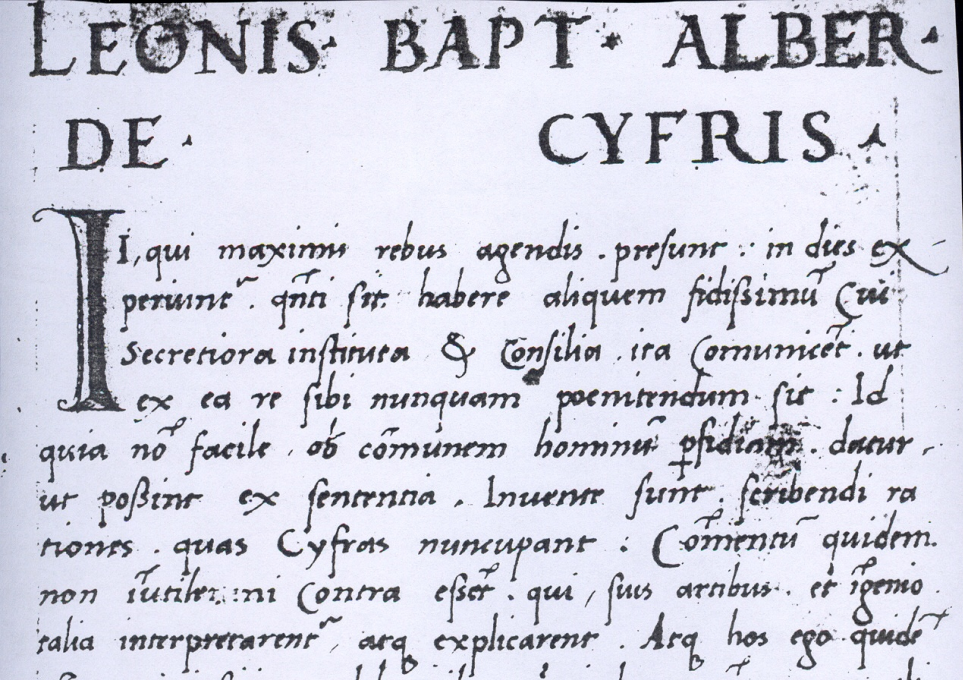 LEONIS · BAPT · ALBER ·
DE · CYFRIS ·
II, qui maximis rebus agendis . presunt : in dies ex
periunt᷑ . qn̄ti sit habere aliquem fidissimū Cui
Secretiora instituta & Consilia . ita Comunicēt . ut
ex ea re sibi nunquam poenitendum sit : Id
quia nō facile . ob cōmunem hominū ꝑfidiam . datur .
ut possint ex sententia . Invente sunt . scribendi ra
tiones . quas Cyfras nuncupant : Cōmentū quidem .
non īutile: ni Contra essēt . qui , suis artibus . et īgenio
talia interpretarent᷑ atq explicarent . Atq hos ego quidē